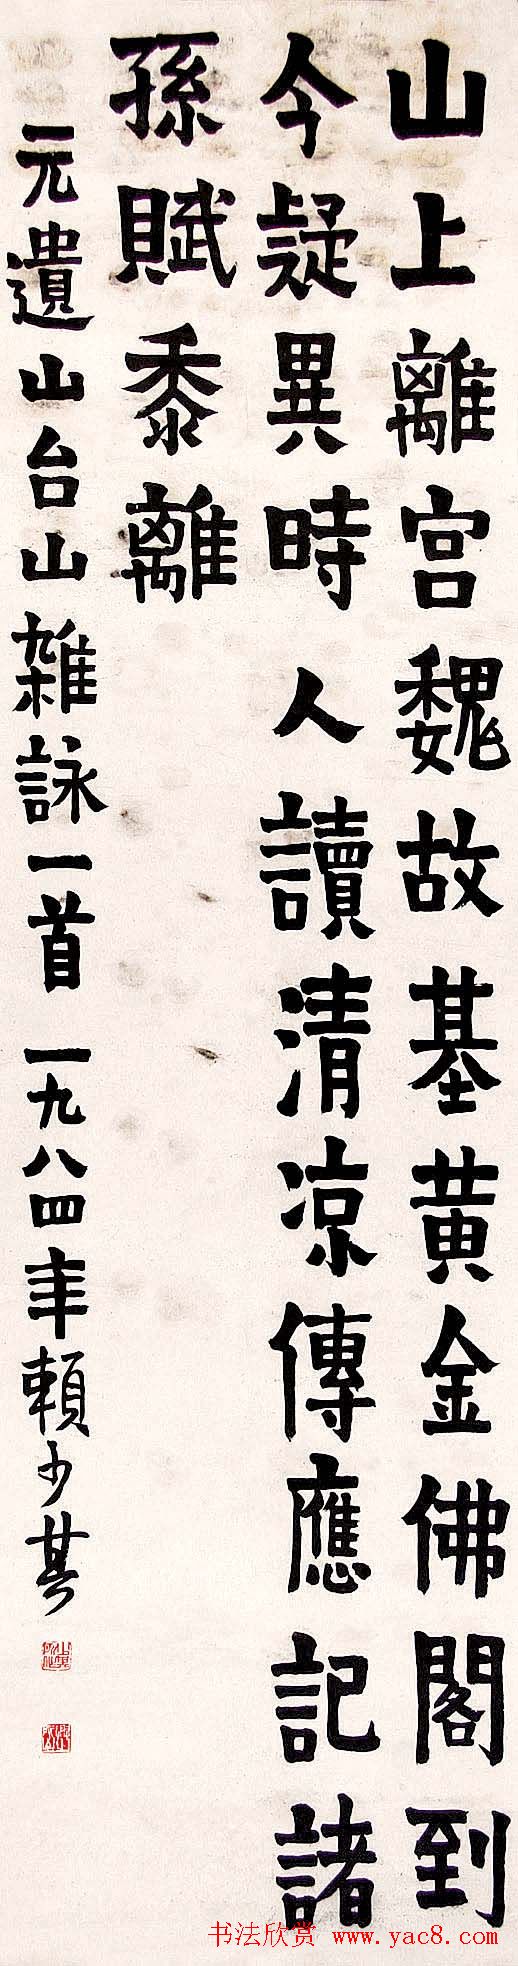 山上離宮魏故基黄金佛閣到
今疑異時人讀清凉傳應記諸
孫賦黍離
元遺山台山雜詠一首 一九八四年賴少其
书法欣赏 www.yac8.com